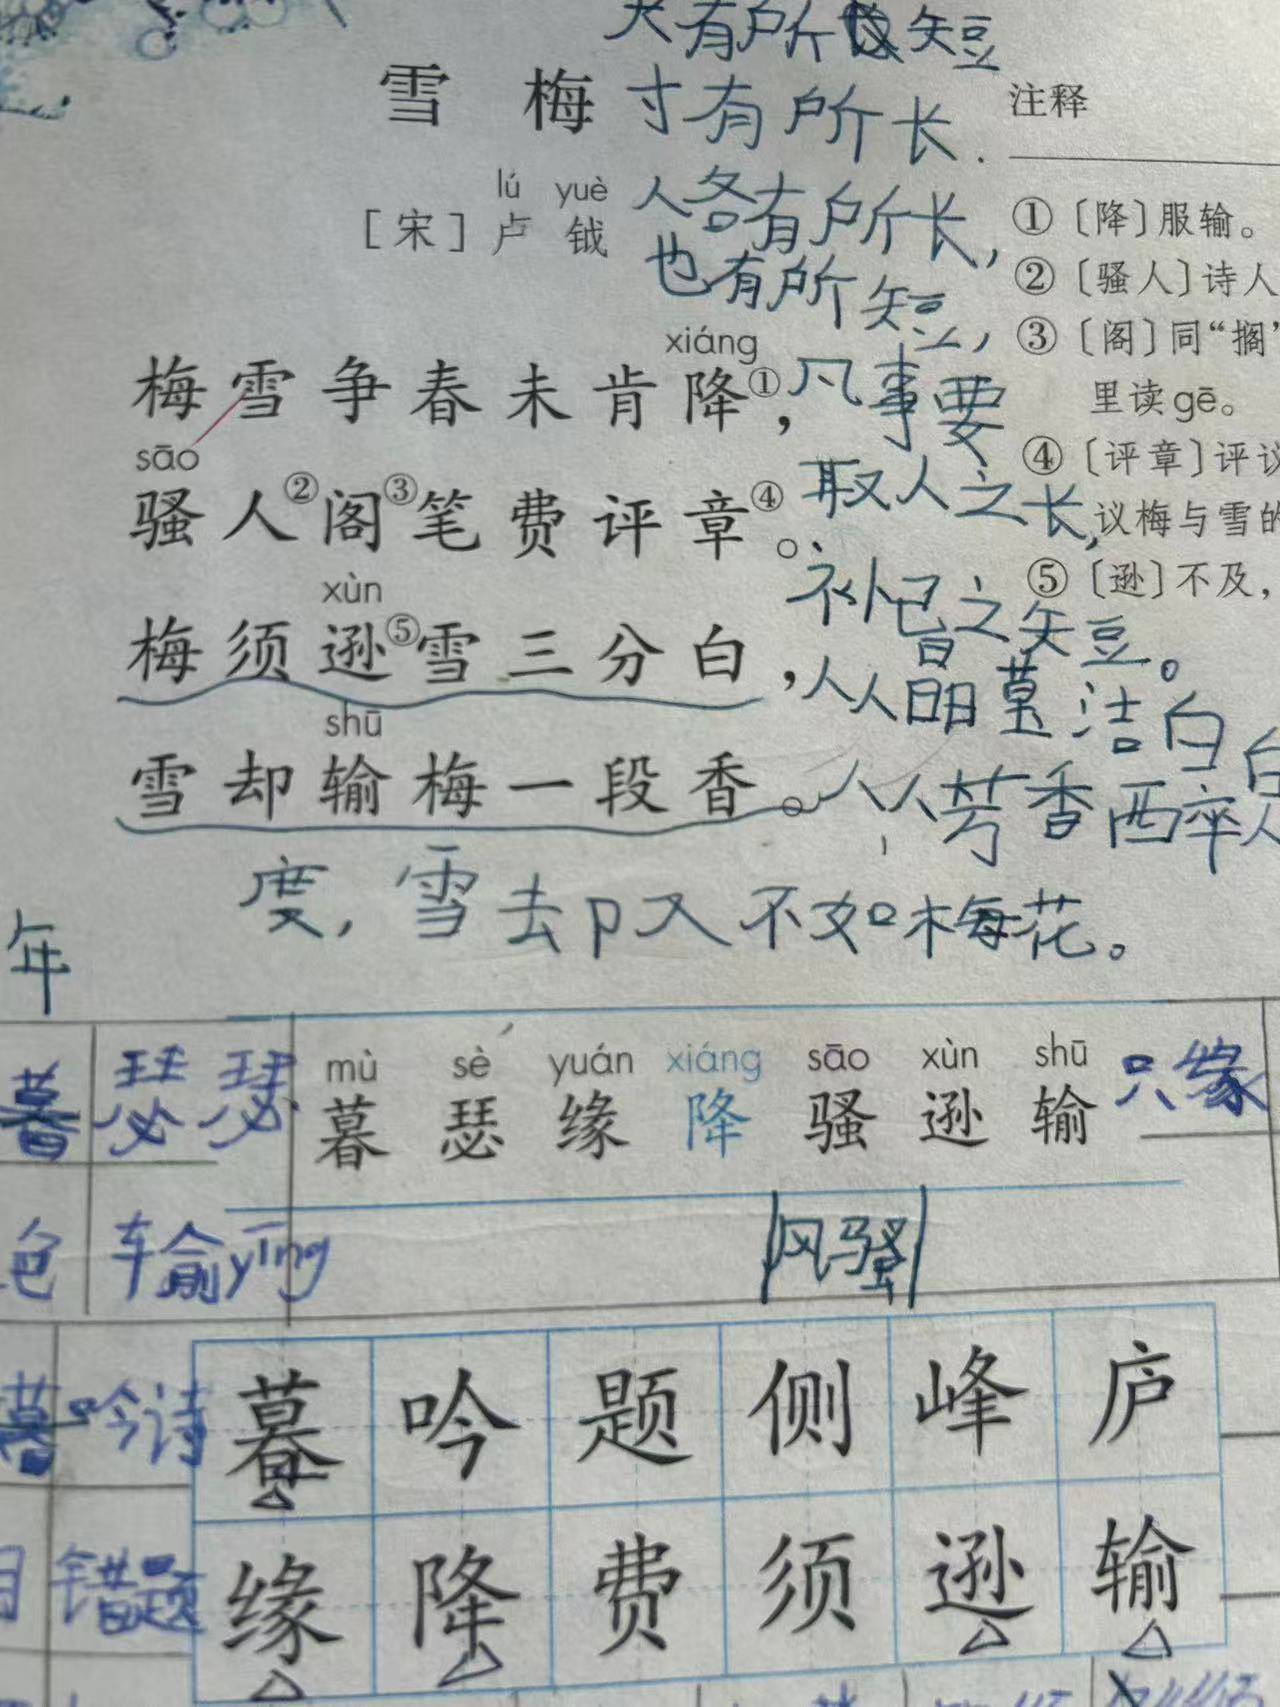 尺有所短
雪 梅
寸有所长.
注释
lú yuè
[宋]卢 钺
人各有所长，
也有所短，
①〔降〕服输。
②〔骚人〕诗人
③〔阁〕同“搁”
里读gē。
④〔评章〕评议
议梅与雪的
⑤〔逊〕不及，
xiáng
梅雪争春未肯降①，
凡事要
sāo
骚人②阁③笔费评章④。
取人之长，
补己之短。
xùn
梅须逊⑤雪三分白，
洁白
shū
雪却输梅一段香。
人从芳香
度，雪却又不如梅花。
年
mù sè yuán xiáng sāo xùn shū
暮 瑟 缘 降 骚 逊 输
暮
瑟瑟
只缘
色
输yīng
风骚
暮
吟诗
暮 吟 题 侧 峰 庐
错题
缘 降 费 须 逊 输